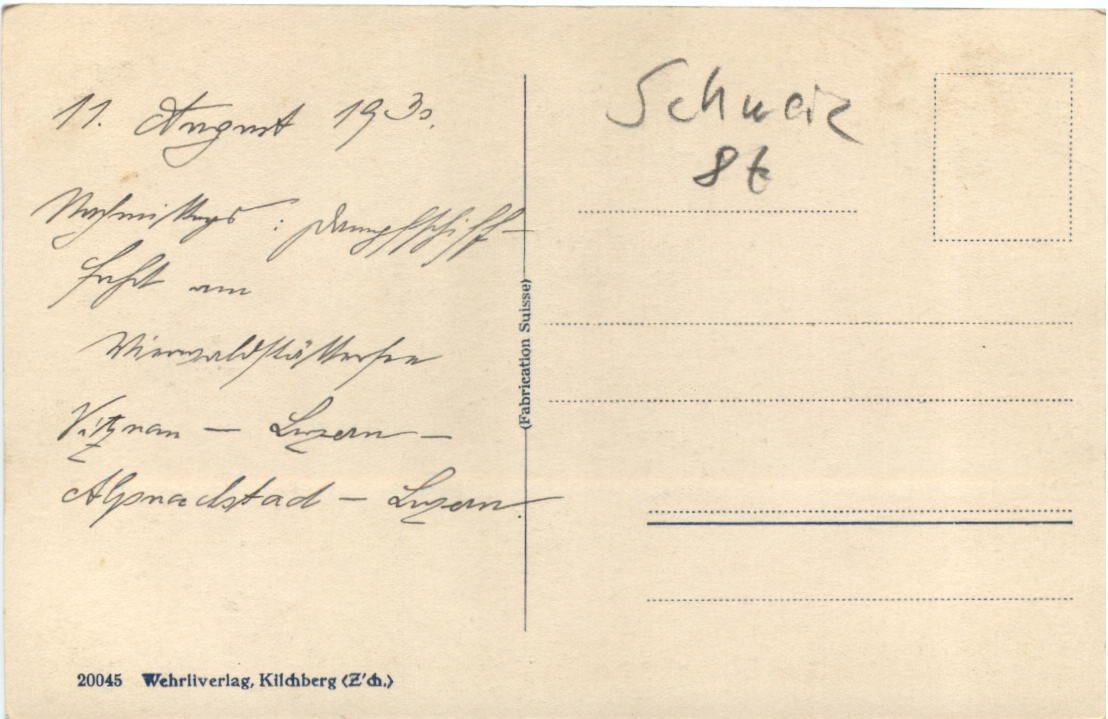 11. August 1930.
Nachmittags: Dampfschiff-
fahrt am
Vierwaldstättersee
Vitznau — Luzern —
Alpnachstad — Luzern.
20045 Wehrliverlag, Kilchberg (Z'ch.)
(Fabrication Suisse)
Schweiz
8t